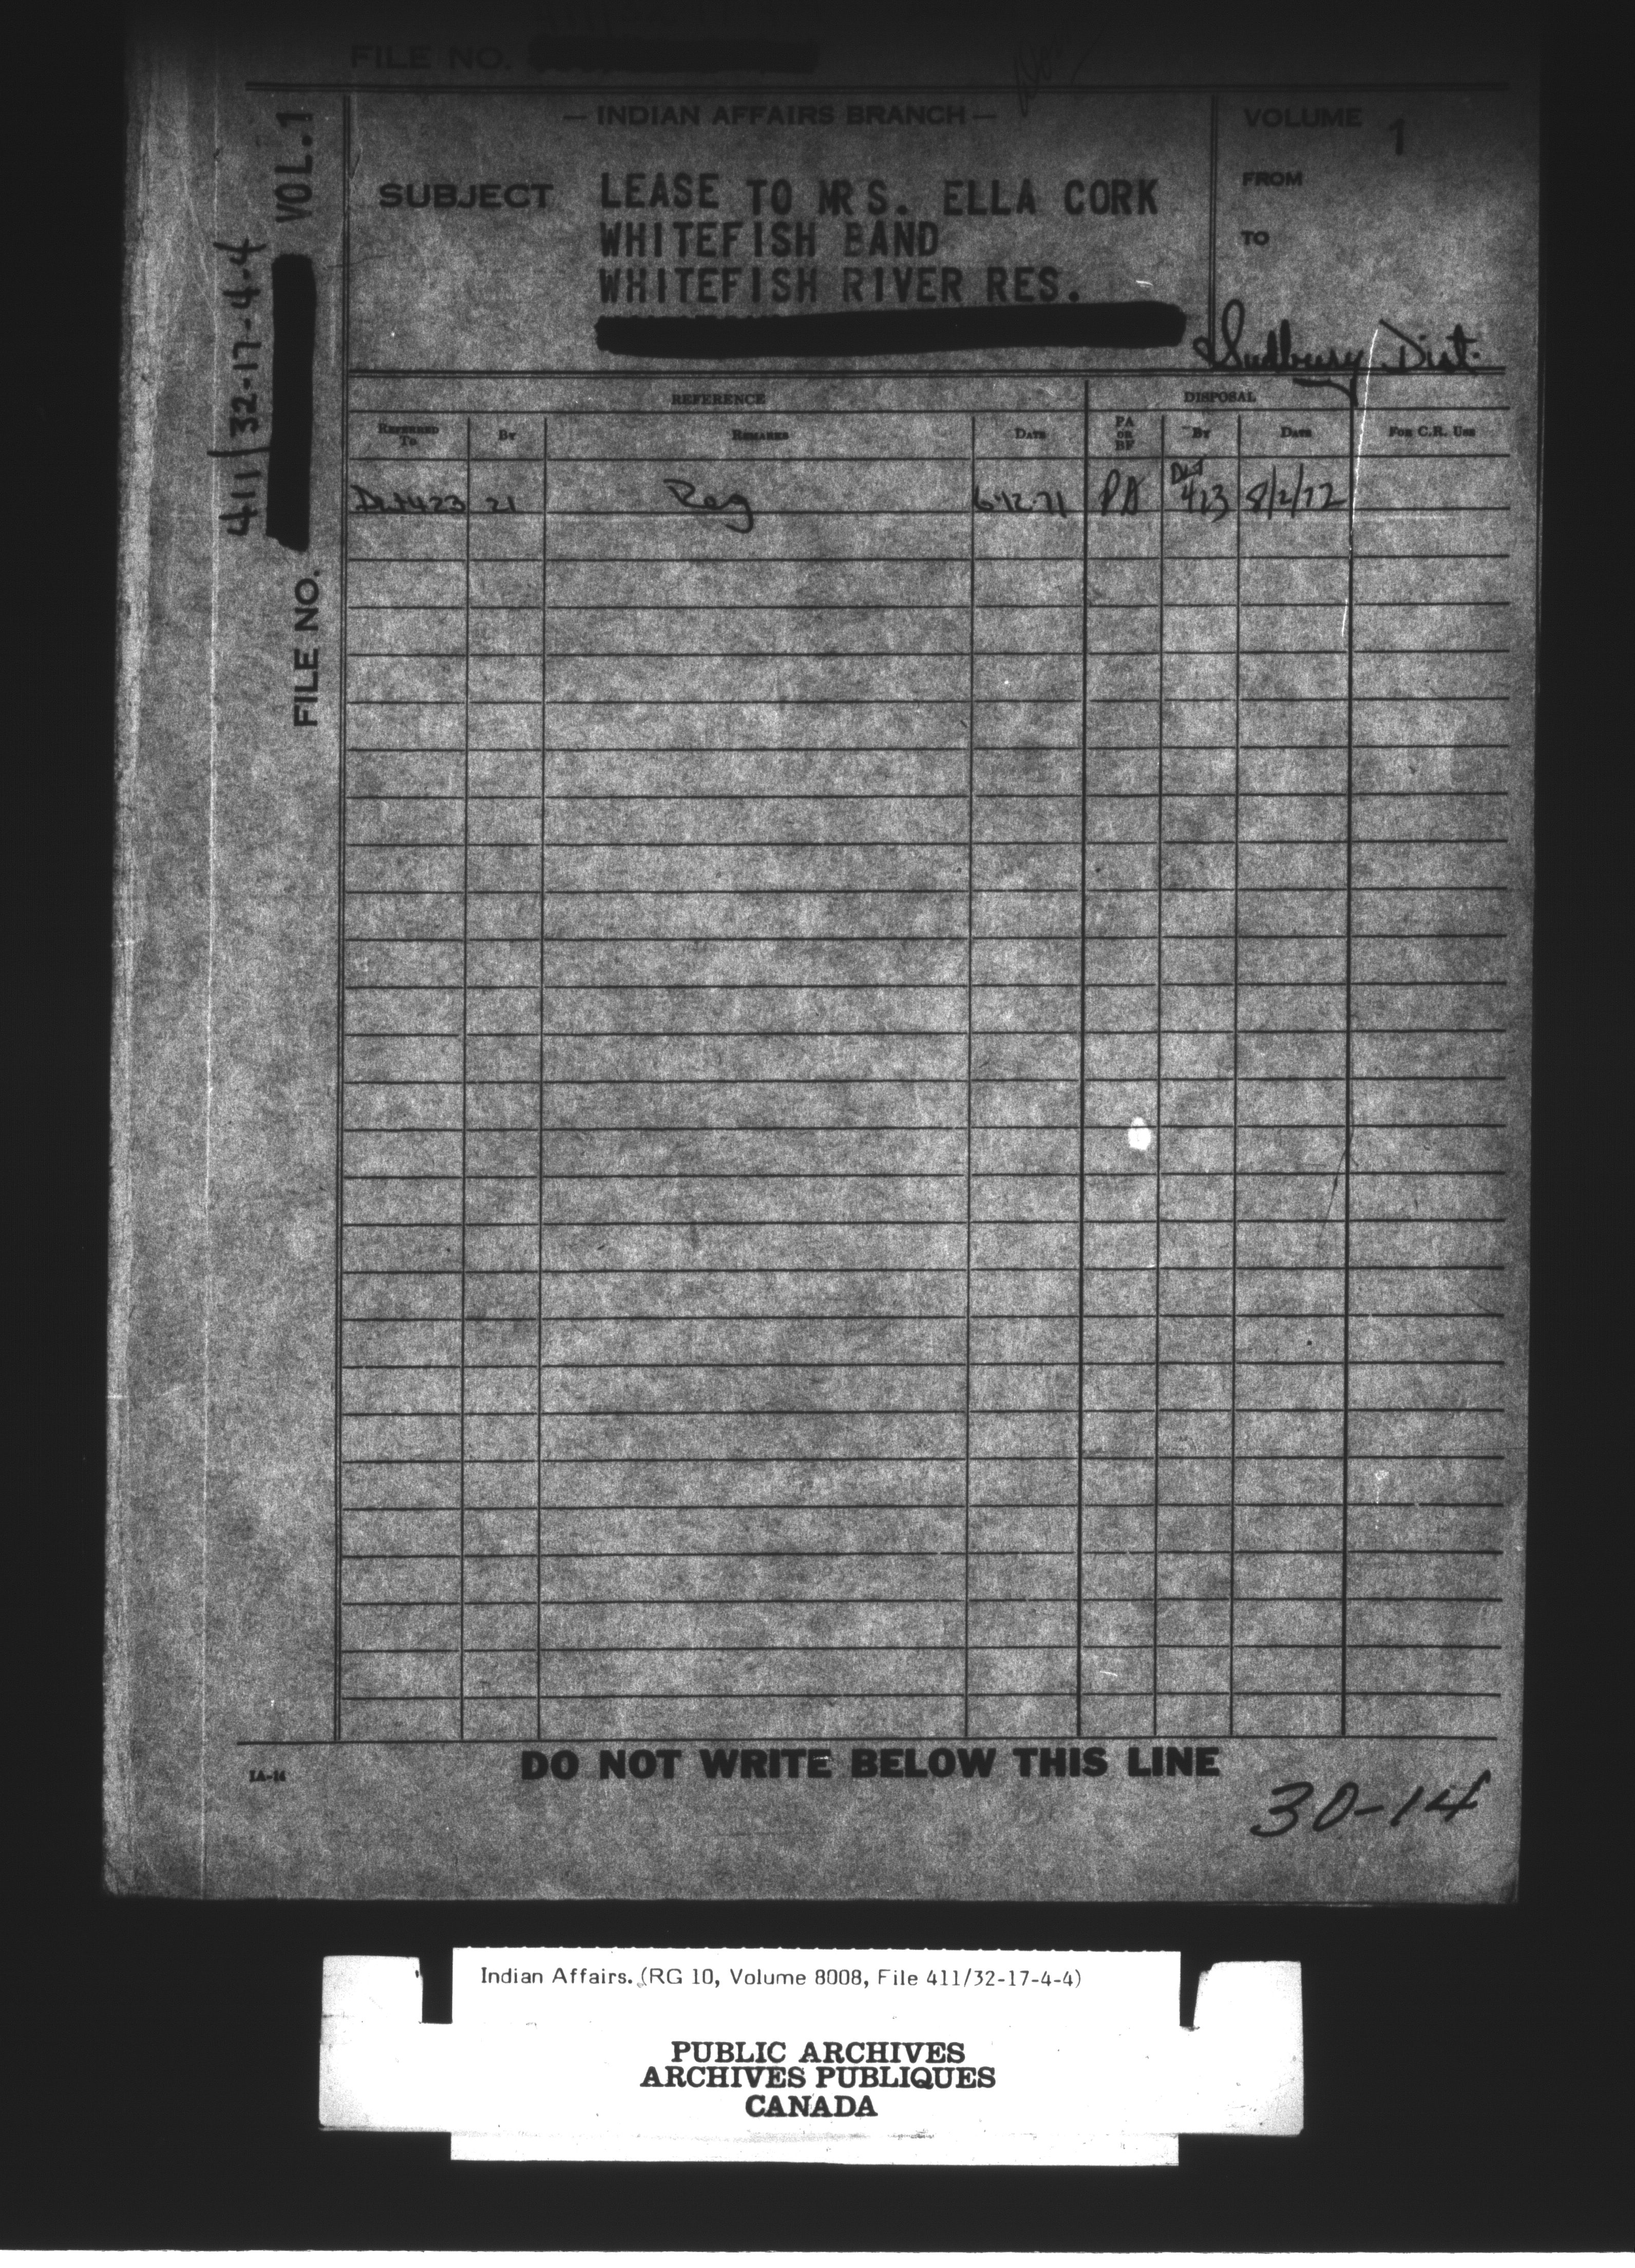 FILE NO.
— INDIAN AFFAIRS BRANCH —
VOLUME 1
FROM
TO
SUBJECT LEASE TO MRS. ELLA CORK
WHITEFISH BAND
WHITEFISH RIVER RES.
Sudbury Dist.
FILE NO. VOL.1
411/32-17-4-4
REFERENCE DISPOSAL
REFERRED TO BY REMARKS DATE PA OR BF BY DATE FOR C.R. USE
423 21 Reg 6-12-71 PA 413 8/2/72
DO NOT WRITE BELOW THIS LINE
30-14
Indian Affairs. (RG 10, Volume 8008, File 411/32-17-4-4)
PUBLIC ARCHIVES
ARCHIVES PUBLIQUES
CANADA